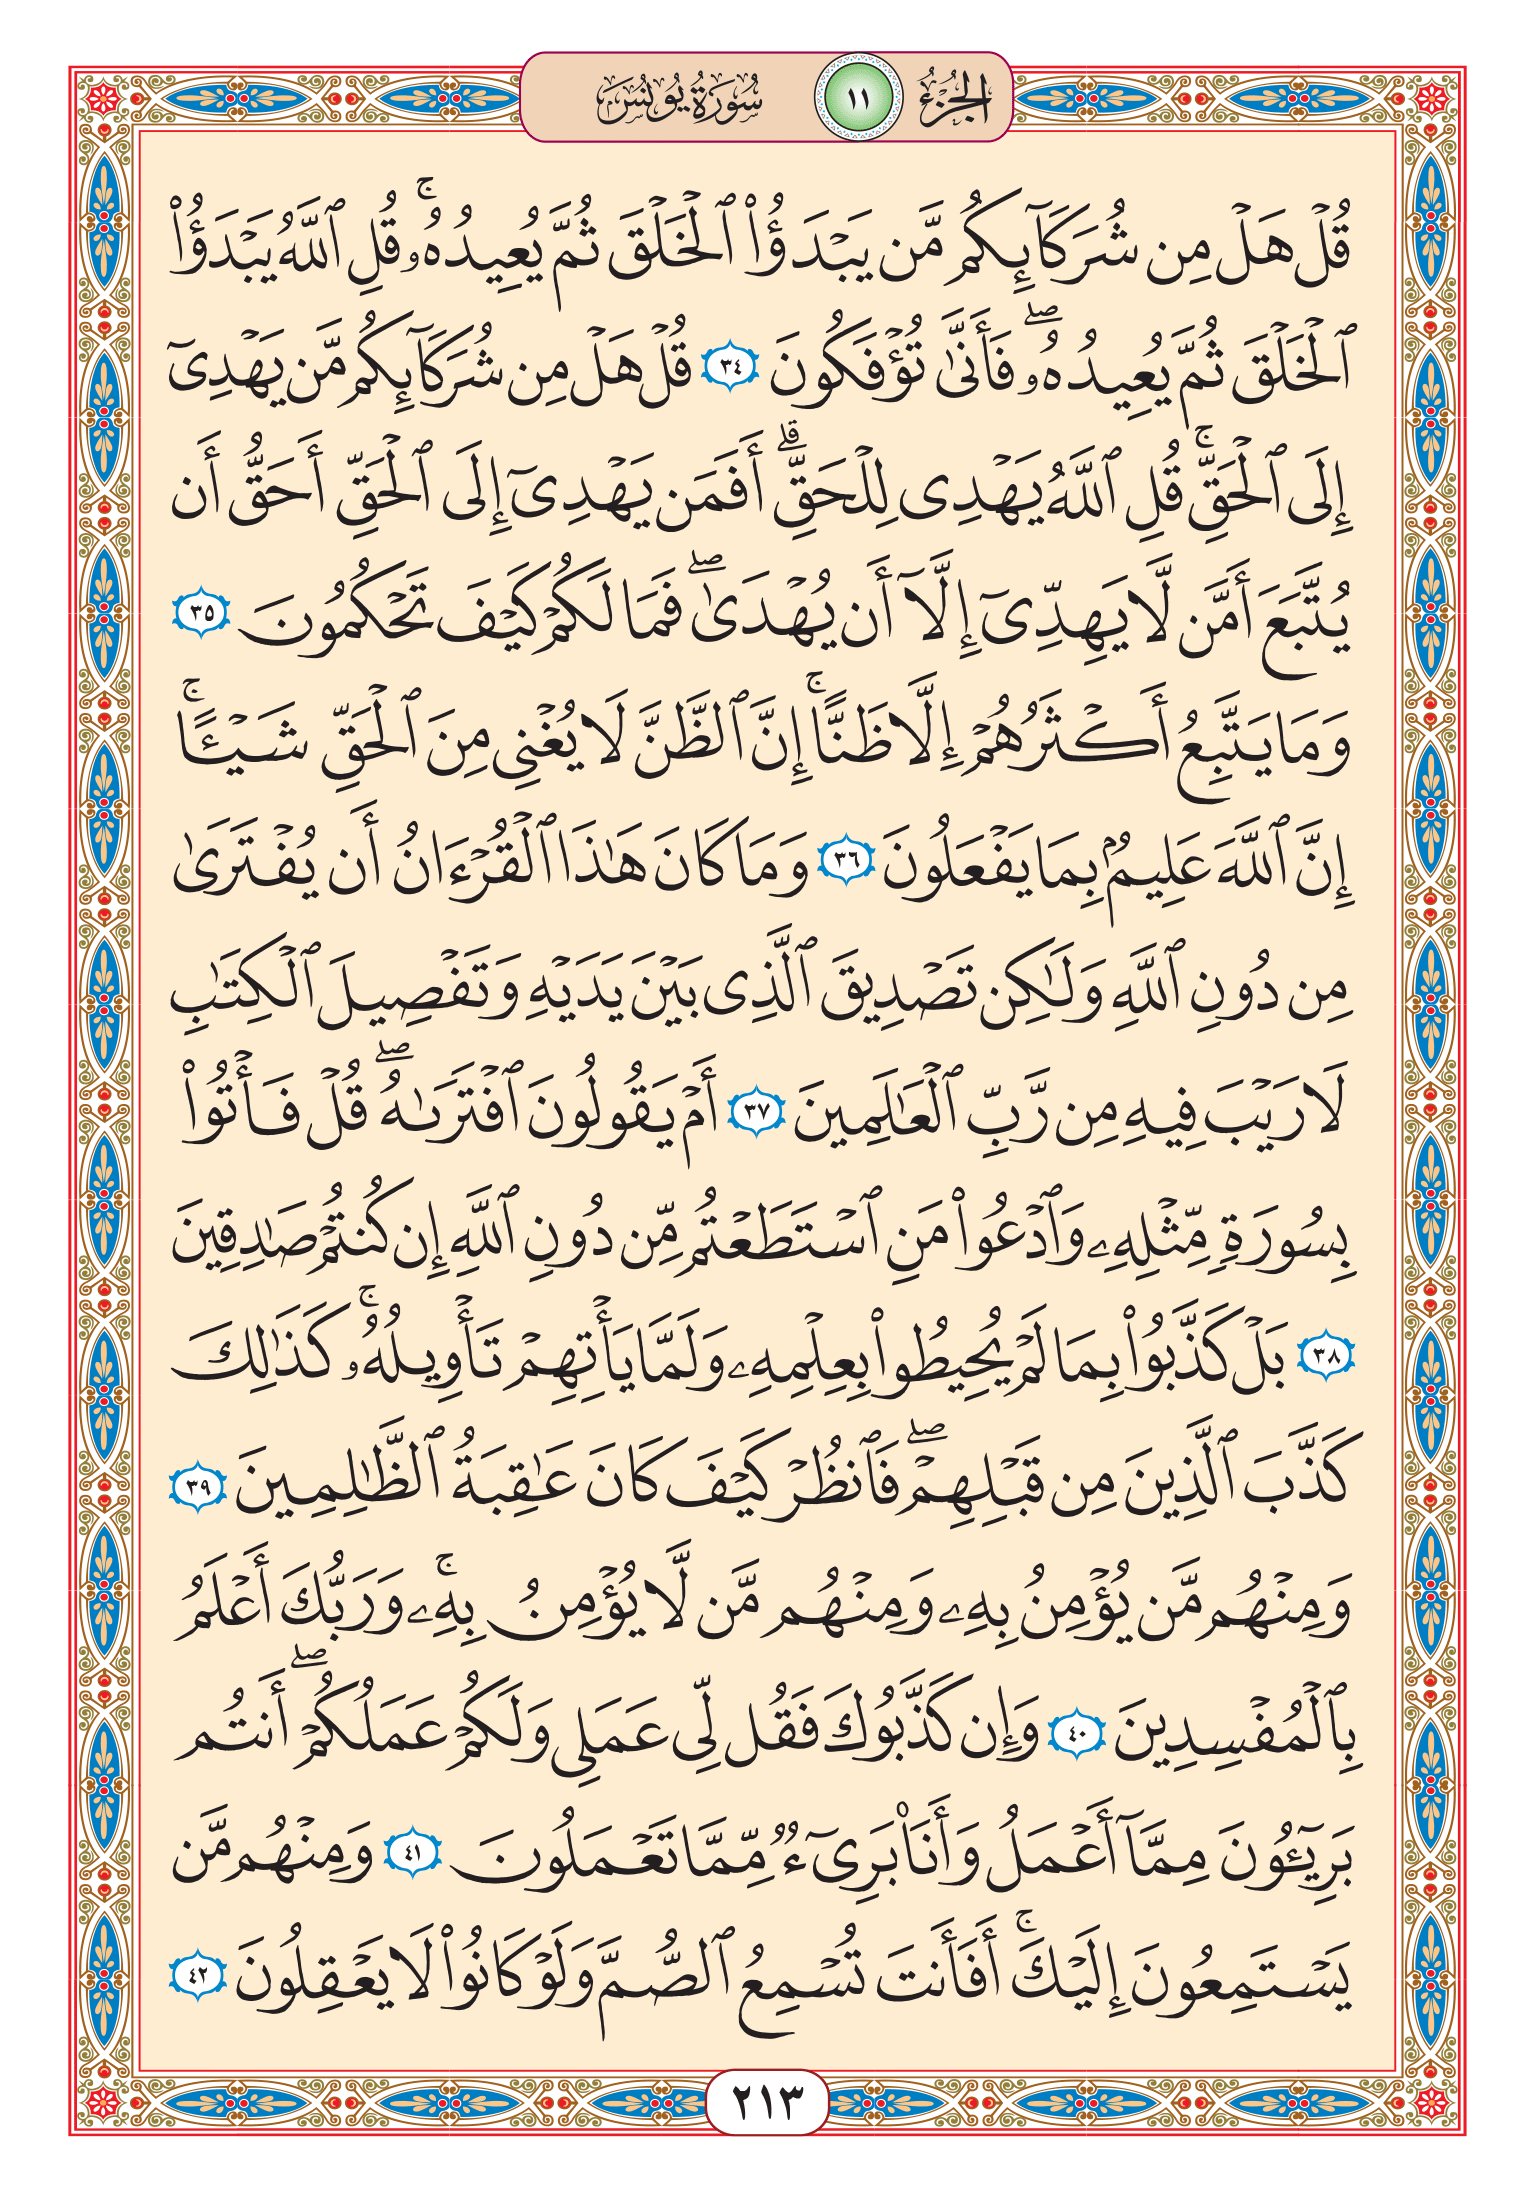 الجزء ١١ سورة يونس
قُلْ هَلْ مِن شُرَكَآئِكُم مَّن يَبْدَؤُا۟ ٱلْخَلْقَ ثُمَّ يُعِيدُهُۥ ۚ قُلِ ٱللَّهُ يَبْدَؤُا۟
ٱلْخَلْقَ ثُمَّ يُعِيدُهُۥ ۖ فَأَنَّىٰ تُؤْفَكُونَ ٣٤ قُلْ هَلْ مِن شُرَكَآئِكُم مَّن يَهْدِىٓ
إِلَى ٱلْحَقِّ ۚ قُلِ ٱللَّهُ يَهْدِى لِلْحَقِّ ۗ أَفَمَن يَهْدِىٓ إِلَى ٱلْحَقِّ أَحَقُّ أَن
يُتَّبَعَ أَمَّن لَّا يَهِدِّىٓ إِلَّآ أَن يُهْدَىٰ ۖ فَمَا لَكُمْ كَيْفَ تَحْكُمُونَ ٣٥
وَمَا يَتَّبِعُ أَكْثَرُهُمْ إِلَّا ظَنًّا ۚ إِنَّ ٱلظَّنَّ لَا يُغْنِى مِنَ ٱلْحَقِّ شَيْـًٔا ۚ
إِنَّ ٱللَّهَ عَلِيمٌۢ بِمَا يَفْعَلُونَ ٣٦ وَمَا كَانَ هَـٰذَا ٱلْقُرْءَانُ أَن يُفْتَرَىٰ
مِن دُونِ ٱللَّهِ وَلَـٰكِن تَصْدِيقَ ٱلَّذِى بَيْنَ يَدَيْهِ وَتَفْصِيلَ ٱلْكِتَـٰبِ
لَا رَيْبَ فِيهِ مِن رَّبِّ ٱلْعَـٰلَمِينَ ٣٧ أَمْ يَقُولُونَ ٱفْتَرَىٰهُ ۖ قُلْ فَأْتُوا۟
بِسُورَةٍ مِّثْلِهِۦ وَٱدْعُوا۟ مَنِ ٱسْتَطَعْتُم مِّن دُونِ ٱللَّهِ إِن كُنتُمْ صَـٰدِقِينَ
٣٨ بَلْ كَذَّبُوا۟ بِمَا لَمْ يُحِيطُوا۟ بِعِلْمِهِۦ وَلَمَّا يَأْتِهِمْ تَأْوِيلُهُۥ ۚ كَذَٰلِكَ
كَذَّبَ ٱلَّذِينَ مِن قَبْلِهِمْ ۖ فَٱنظُرْ كَيْفَ كَانَ عَـٰقِبَةُ ٱلظَّـٰلِمِينَ ٣٩
وَمِنْهُم مَّن يُؤْمِنُ بِهِۦ وَمِنْهُم مَّن لَّا يُؤْمِنُ بِهِۦ ۚ وَرَبُّكَ أَعْلَمُ
بِٱلْمُفْسِدِينَ ٤٠ وَإِن كَذَّبُوكَ فَقُل لِّى عَمَلِى وَلَكُمْ عَمَلُكُمْ ۖ أَنتُم
بَرِيٓـُٔونَ مِمَّآ أَعْمَلُ وَأَنَا۠ بَرِىٓءٌ مِّمَّا تَعْمَلُونَ ٤١ وَمِنْهُم مَّن
يَسْتَمِعُونَ إِلَيْكَ ۚ أَفَأَنتَ تُسْمِعُ ٱلصُّمَّ وَلَوْ كَانُوا۟ لَا يَعْقِلُونَ ٤٢
٢١٣